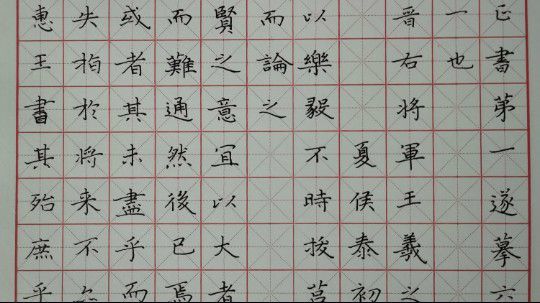 正書第一遂摹六
一也
晉右将軍王羲之
夏侯泰初
以樂毅不時拔莒
而論之
賢之意宜以大者
而難通然後已焉
或者其未盡乎而
失指於将来不亦
惠王書其殆庶乎